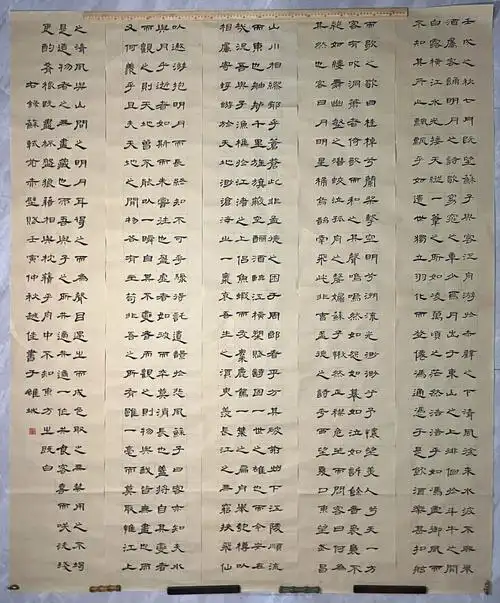 壬戌之秋七月既望蘇子與客泛舟游於赤壁之下清風徐來水波不興舉
酒屬客誦明月之詩歌窈窕之章少焉月出於東山之上徘徊於斗牛之間
白露橫江水光接天縱一葦之所如凌萬頃之茫然浩浩乎如馮虛御風而
不知其所止飄飄乎如遺世獨立羽化而登仙於是飲酒樂甚扣舷
而歌之歌曰桂棹兮蘭槳擊空明兮溯流光渺渺兮予懷望美人兮天一方
客有吹洞簫者倚歌而和之其聲嗚嗚然如怨如慕如泣如訴餘音嫋嫋不
絕如縷舞幽壑之潛蛟泣孤舟之嫠婦蘇子愀然正襟危坐而問客曰何為
其然也客曰月明星稀烏鵲南飛此非曹孟德之詩乎西望夏口東望武昌
山川相繆鬱乎蒼蒼此非孟德之困于周郎者乎方其破荊州下江陵順流
而東也舳艫千里旌旗蔽空釃酒臨江橫槊賦詩固一世之雄也而今安在
哉況吾與子漁樵於江渚之上侶魚蝦而友麋鹿駕一葉之扁舟舉匏樽以
相屬寄蜉蝣於天地渺滄海之一粟哀吾生之須臾羨長江之無窮挾飛仙
以遨遊抱明月而長終知不可乎驟得託遺響於悲風蘇子曰客亦知夫水
與月乎逝者如斯而未嘗往也盈虛者如彼而卒莫消長也蓋將自其變者
而觀之則天地曾不能以一瞬自其不變者而觀之則物與我皆無盡也而
又何羨乎且夫天地之間物各有主苟非吾之所有雖一毫而莫取惟江上
之清風與山間之明月耳得之而為聲目遇之而成色取之無禁用之不竭
是造物者之無盡藏也而吾與子之所共適客喜而笑洗盞
更酌肴核既盡杯盤狼藉相與枕藉乎舟中不知東方之既白
右錄蘇軾前赤壁賦壬寅仲秋越佳書于維城